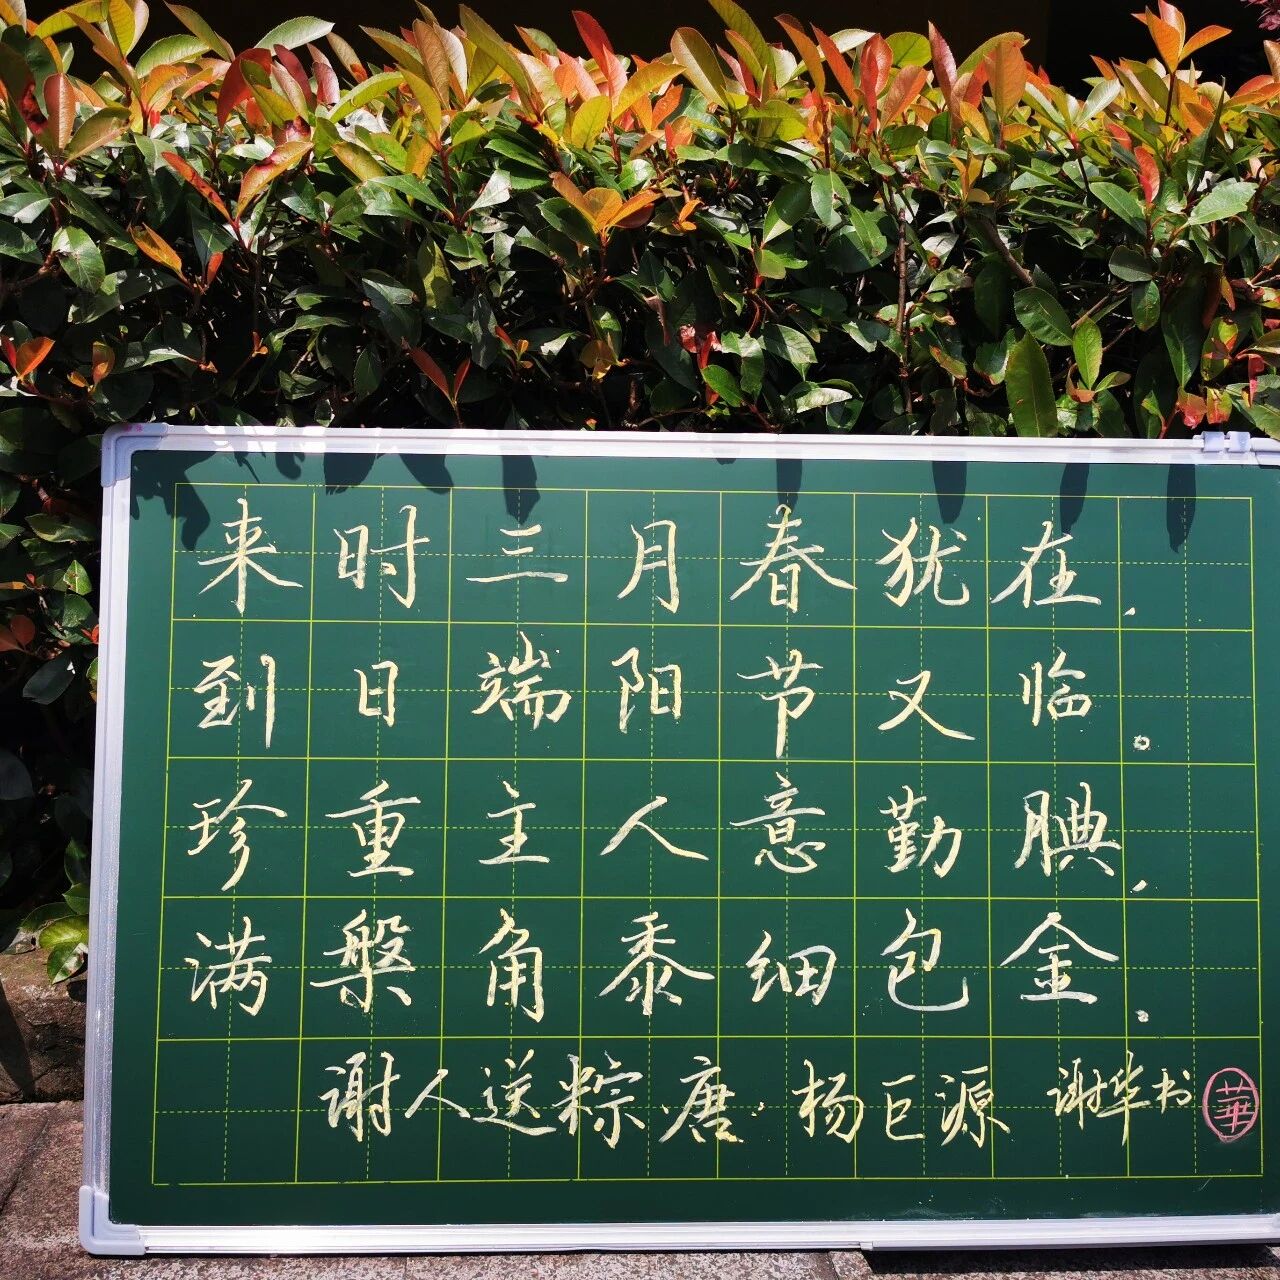 来时三月春犹在,
到日端阳节又临。
珍重主人意勤腆,
满槃角黍细包金.
谢人送粽·唐·杨巨源 谢华书 華